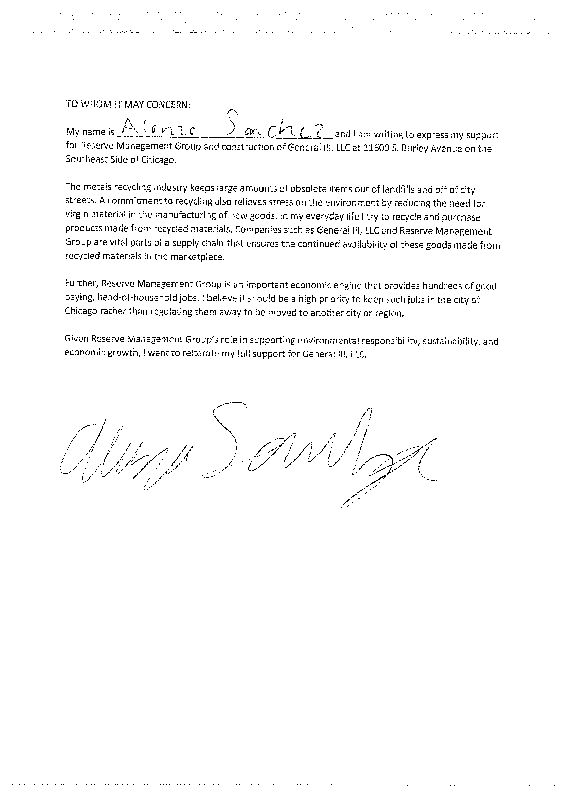 TO WHOM IT MAY CONCERN:
My name is Alonzo Sanchez and I am writing to express my support
for Reserve Management Group and construction of General III, LLC at 11600 S. Burley Avenue on the
Southeast Side of Chicago.
The metals recycling industry keeps large amounts of obsolete items out of landfills and off of city
streets. A commitment to recycling also relieves stress on the environment by reducing the need for
virgin material in the manufacturing of new goods. In my everyday life I try to recycle and purchase
products made from recycled materials. Companies such as General III, LLC and Reserve Management
Group are vital parts of a supply chain that ensures the continued availability of these goods made from
recycled materials in the marketplace.
Further, Reserve Management Group is an important economic engine that provides hundreds of good
paying, head-of-household jobs. I believe it should be a high priority to keep such jobs in the city of
Chicago rather than regulating them away to be moved to another city or region.
Given Reserve Management Group's role in supporting environmental responsibility, sustainability, and
economic growth, I want to reiterate my full support for General III, LLC.
Alonzo Sanchez